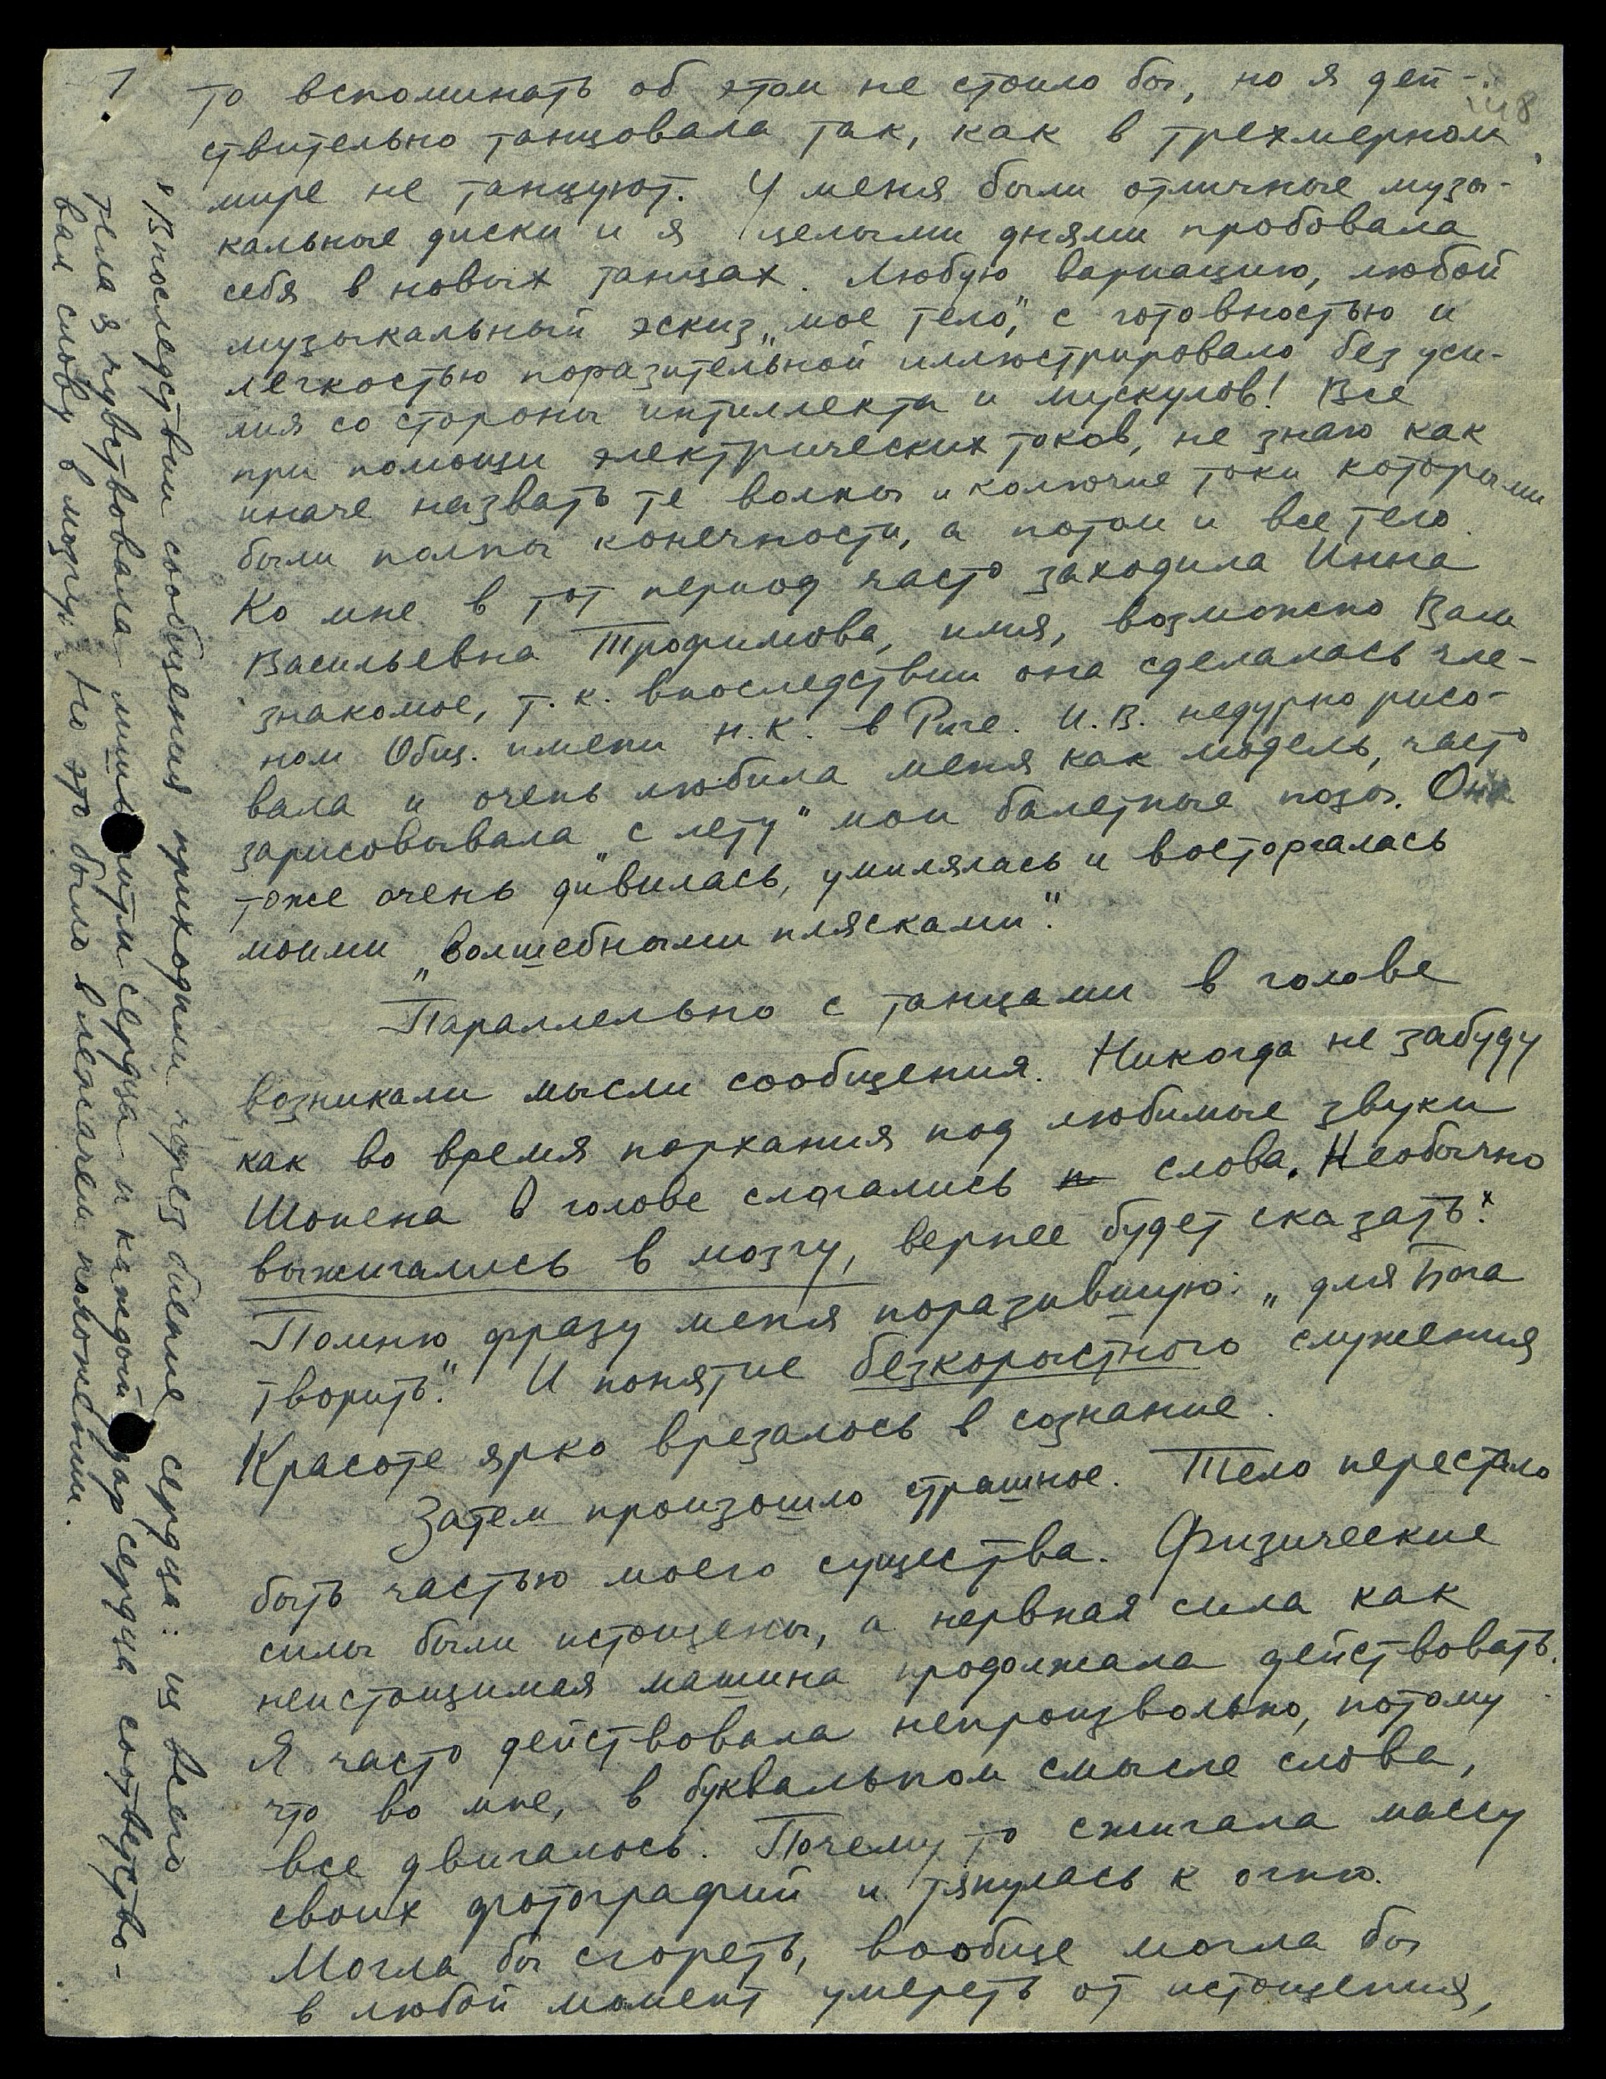 7.
148
то вспоминать об этом не стоило бы, но я дей-
ствительно танцовала так, как в трехмерном
мире не танцуют. У меня были отличные музы-
кальные диски и я целыми днями пробовала
себя в новых танцах. Любую вариацию, любой
музыкальный эскиз „мое тело", с готовностью и
легкостью поразительной иллюстрировало без уси-
лия со стороны интиллекта и мускулов! Все
при помощи электрических токов, не знаю как
иначе назвать те волны и колючие токи которыми
были полны конечности, а потом и все тело.
Ко мне в тот период часто заходила Инна
Васильевна Трофимова, имя, возможно Вам
знакомое, т.к. впоследствии она сделалась чле-
ном Общ. имени Н.К. в Риге. И.В. недурно рисо-
вала и очень любила меня как модель, часто
зарисовывала „с лету" мои балетные позы. Она
тоже очень дивилась, умилялась и восторгалась
моими „волшебными плясками".
Параллельно с танцами в голове
возникали мысли сообщения. Никогда не забуду
как во время порхания под любимые звуки
Шопена в голове слагались н слова. Необычно
выжигались в мозгу, вернее будет сказать.x
Помню фразу меня поразившую: „для Бога
творить". И понятие безкорыстного служения
Красоте ярко врезалось в сознание.
Затем произошло страшное. Тело перестало
быть частью моего существа. Физические
силы были истощены, а нервная сила как
неистощимая машина продолжала действовать.
Я часто действовала непроизвольно, потому
что во мне, в буквальном смысле слова,
все двигалось. Почему то сжигала массу
своих фотографий и тянулась к огню.
Могла бы сгореть, вообще могла бы
в любой момент умереть от истощения,
x Впоследствии сообщения приходили через биение сердца: из всего
тела я чувствовала лишь ритм сердца и каждый удар сердца соответство-
вал слову в мозгу. Но это было в лежачем положении.